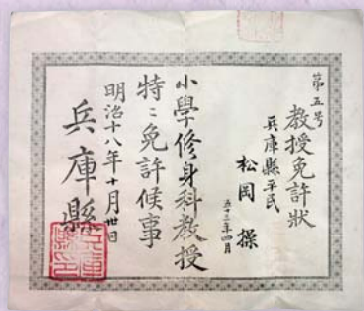 第五号
教授免許状
兵庫縣平民
松岡 操
五十二年四月
小學修身科教授
特ニ免許候事
明治十八年十月卅日
兵庫縣
兵庫縣印